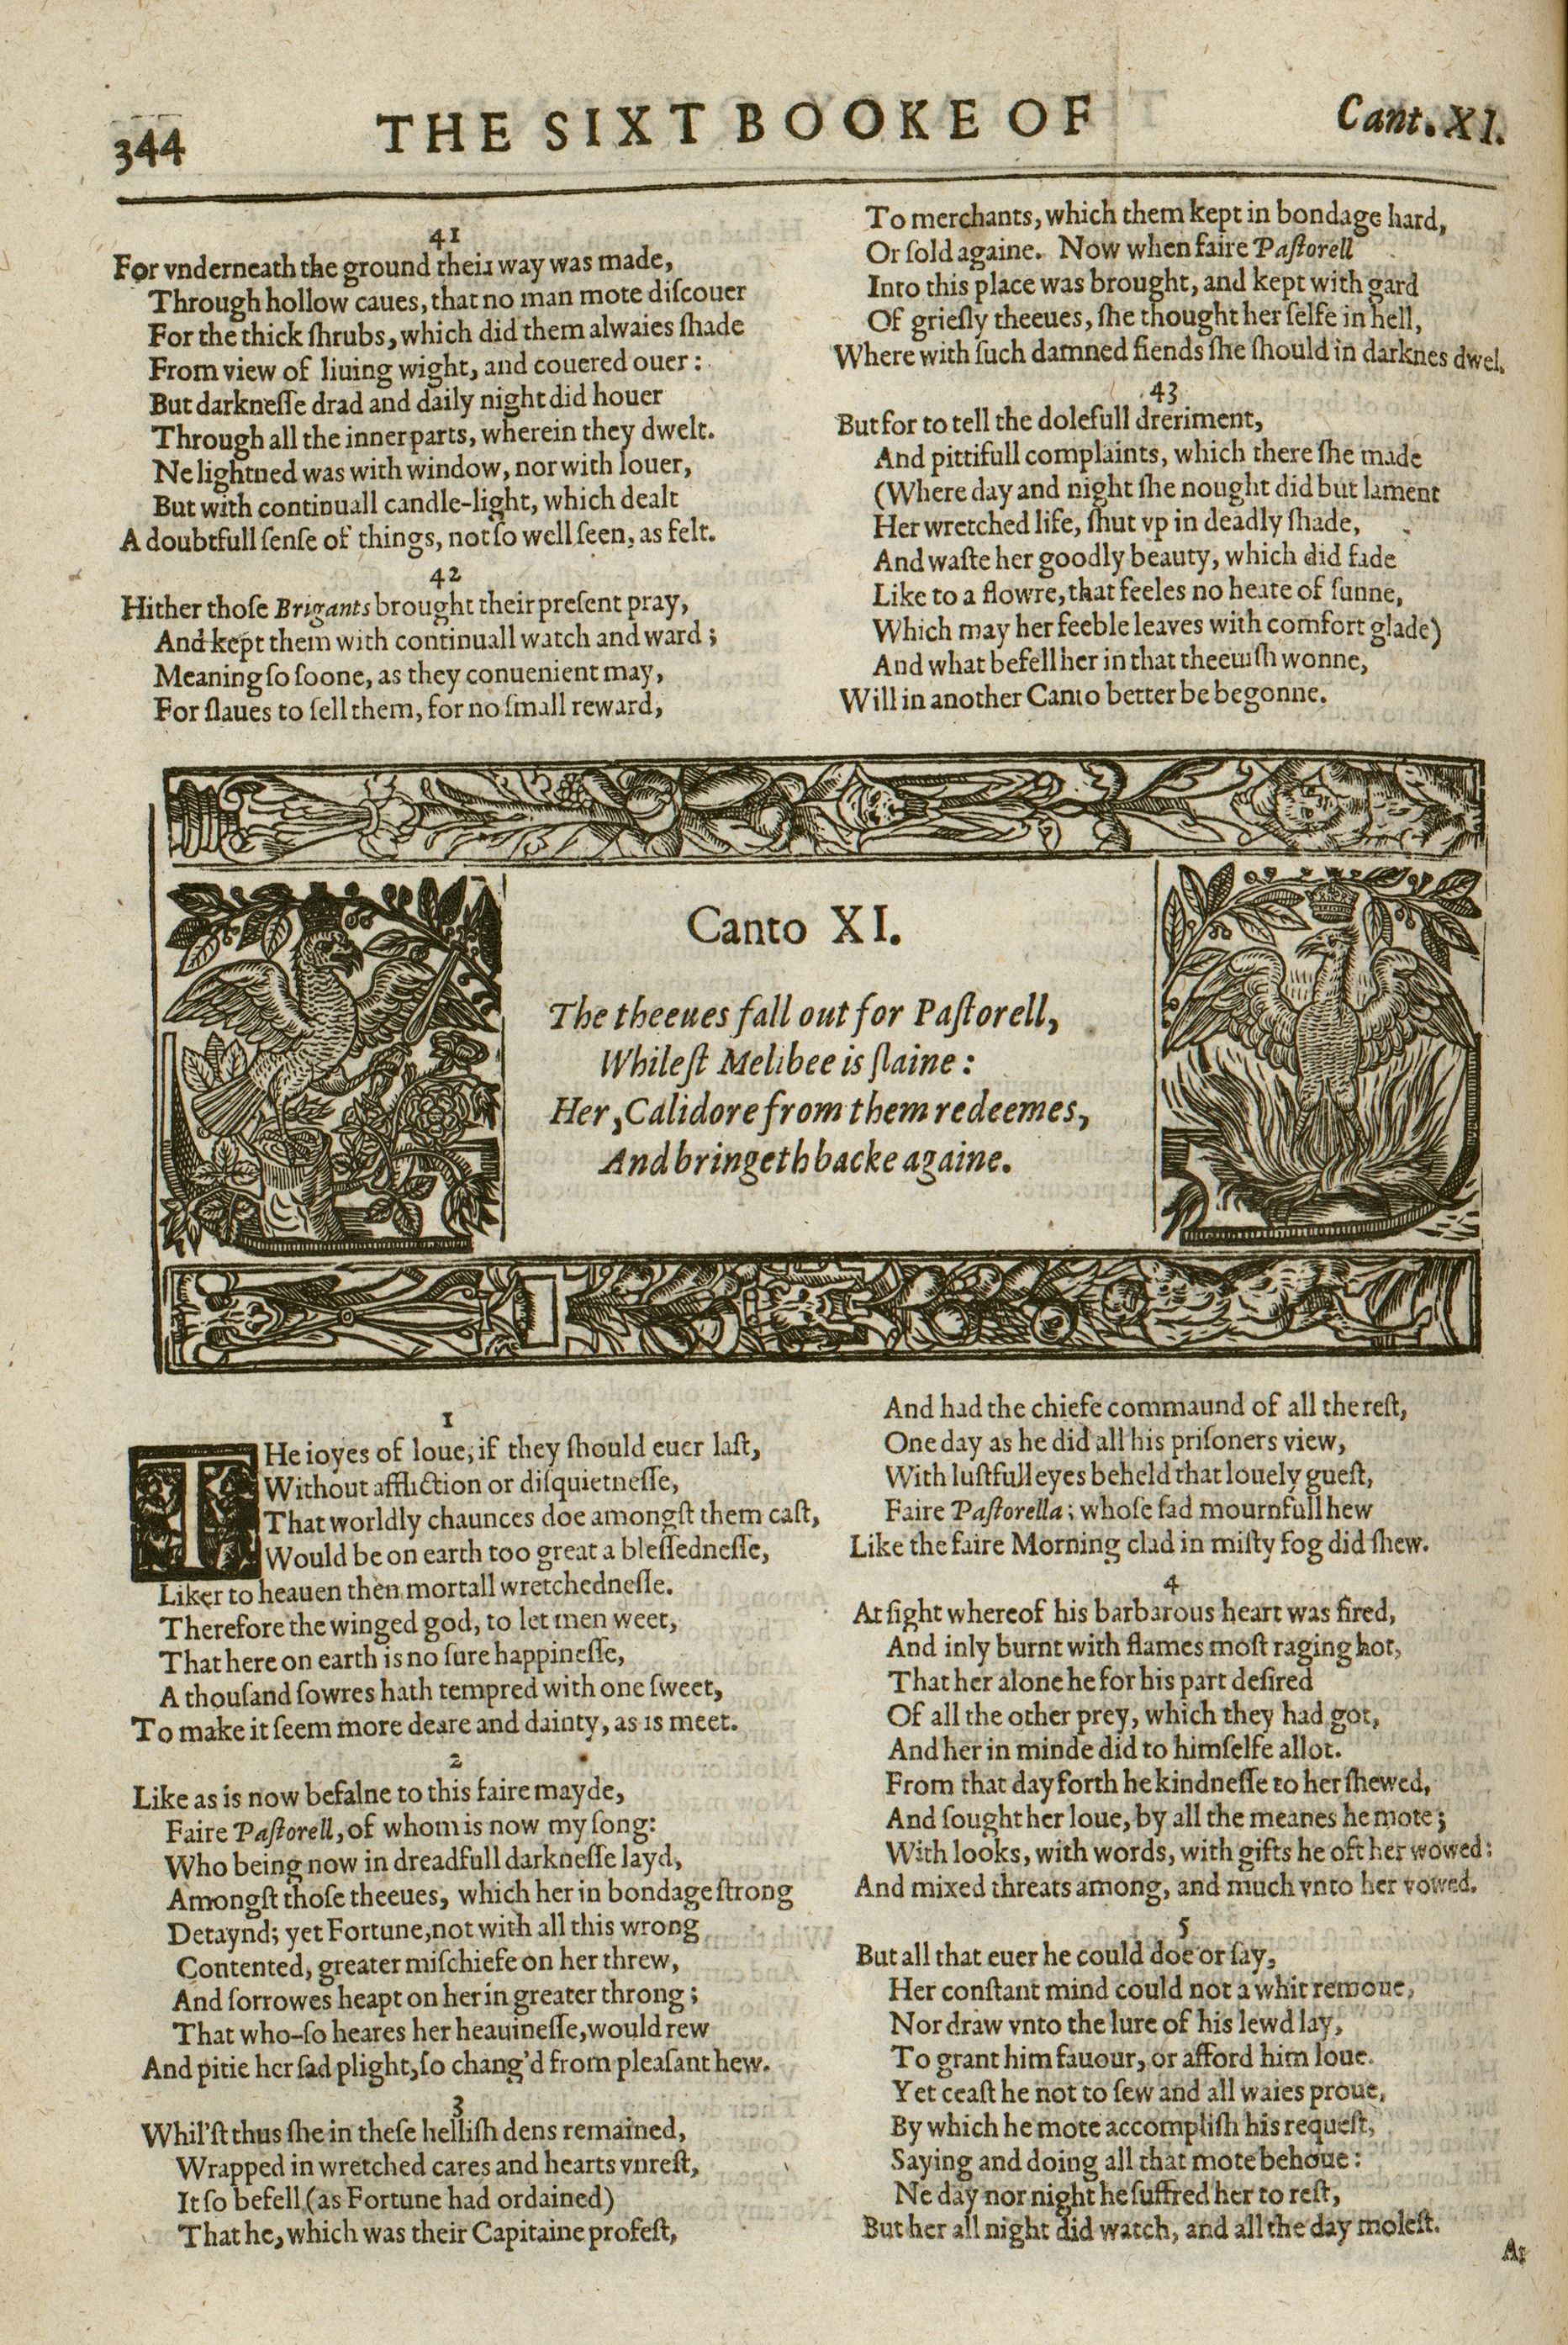 344
THE SIXT BOOKE OF
Cant. XI.
41
For vnderneath the ground their way was made,
Through hollow caues, that no man mote diſcouer
For the thick ſhrubs, which did them alwaies ſhade
From view of liuing wight, and couered ouer:
But darkneſſe drad and daily night did houer
Through all the inner parts, wherein they dwelt.
Ne lightned was with window, nor with louer,
But with continuall candle-light, which dealt
A doubtfull ſenſe of things, not ſo well ſeen, as felt.
42
Hither thoſe Brigants brought their preſent pray,
And kept them with continuall watch and ward;
Meaning ſo ſoone, as they conuenient may,
For ſlaues to ſell them, for no ſmall reward,
To merchants, which them kept in bondage hard,
Or ſold againe. Now when faire Paſtorell
Into this place was brought, and kept with gard
Of grieſly theeues, ſhe thought her ſelfe in hell,
Where with ſuch damned fiends ſhe ſhould in darknes dwel.
43
But for to tell the dolefull dreriment,
And pittifull complaints, which there ſhe made
(Where day and night ſhe nought did but lament
Her wretched life, ſhut vp in deadly ſhade,
And waſte her goodly beauty, which did fade
Like to a flowre, that feeles no heate of ſunne,
Which may her feeble leaves with comfort glade)
And what befell her in that theeuiſh wonne,
Will in another Canto better be begonne.
Canto XI.
The theeues fall out for Paſtorell,
Whileſt Melibee is ſlaine:
Her, Calidore from them redeemes,
And bringeth backe againe.
1
THe ioyes of loue, if they ſhould euer laſt,
Without affliction or diſquietneſſe,
That worldly chaunces doe amongſt them caſt,
Would be on earth too great a bleſſedneſſe,
Liker to heauen then mortall wretchedneſſe.
Therefore the winged god, to let men weet,
That here on earth is no ſure happineſſe,
A thouſand ſowres hath tempred with one ſweet,
To make it ſeem more deare and dainty, as is meet.
2
Like as is now befalne to this faire mayde,
Faire Paſtorell, of whom is now my ſong:
Who being now in dreadfull darkneſſe layd,
Amongſt thoſe theeues, which her in bondage ſtrong
Detaynd; yet Fortune, not with all this wrong
Contented, greater miſchiefe on her threw,
And ſorrowes heapt on her in greater throng;
That who-ſo heares her heauineſſe, would rew
And pitie her ſad plight, ſo chang'd from pleaſant hew.
3
Whil'ſt thus ſhe in theſe helliſh dens remained,
Wrapped in wretched cares and hearts vnreſt,
It ſo befell (as Fortune had ordained)
That he, which was their Capitaine profeſt,
And had the chiefe commaund of all the reſt,
One day as he did all his priſoners view,
With luſtfull eyes beheld that louely gueſt,
Faire Paſtorella; whoſe ſad mournfull hew
Like the faire Morning clad in miſty fog did ſhew.
4
At ſight whereof his barbarous heart was fired,
And inly burnt with flames moſt raging hot,
That her alone he for his part deſired
Of all the other prey, which they had got,
And her in minde did to himſelfe allot.
From that day forth he kindneſſe to her ſhewed,
And ſought her loue, by all the meanes he mote;
With looks, with words, with gifts he oft her wowed:
And mixed threats among, and much vnto her vowed.
5
But all that euer he could doe or ſay,
Her conſtant mind could not a whit remoue,
Nor draw vnto the lure of his lewd lay,
To grant him fauour, or afford him loue.
Yet ceaſt he not to ſew and all waies proue,
By which he mote accompliſh his requeſt,
Saying and doing all that mote behoue:
Ne day nor night he ſuffred her to reſt,
But her all night did watch, and all the day moleſt.
At